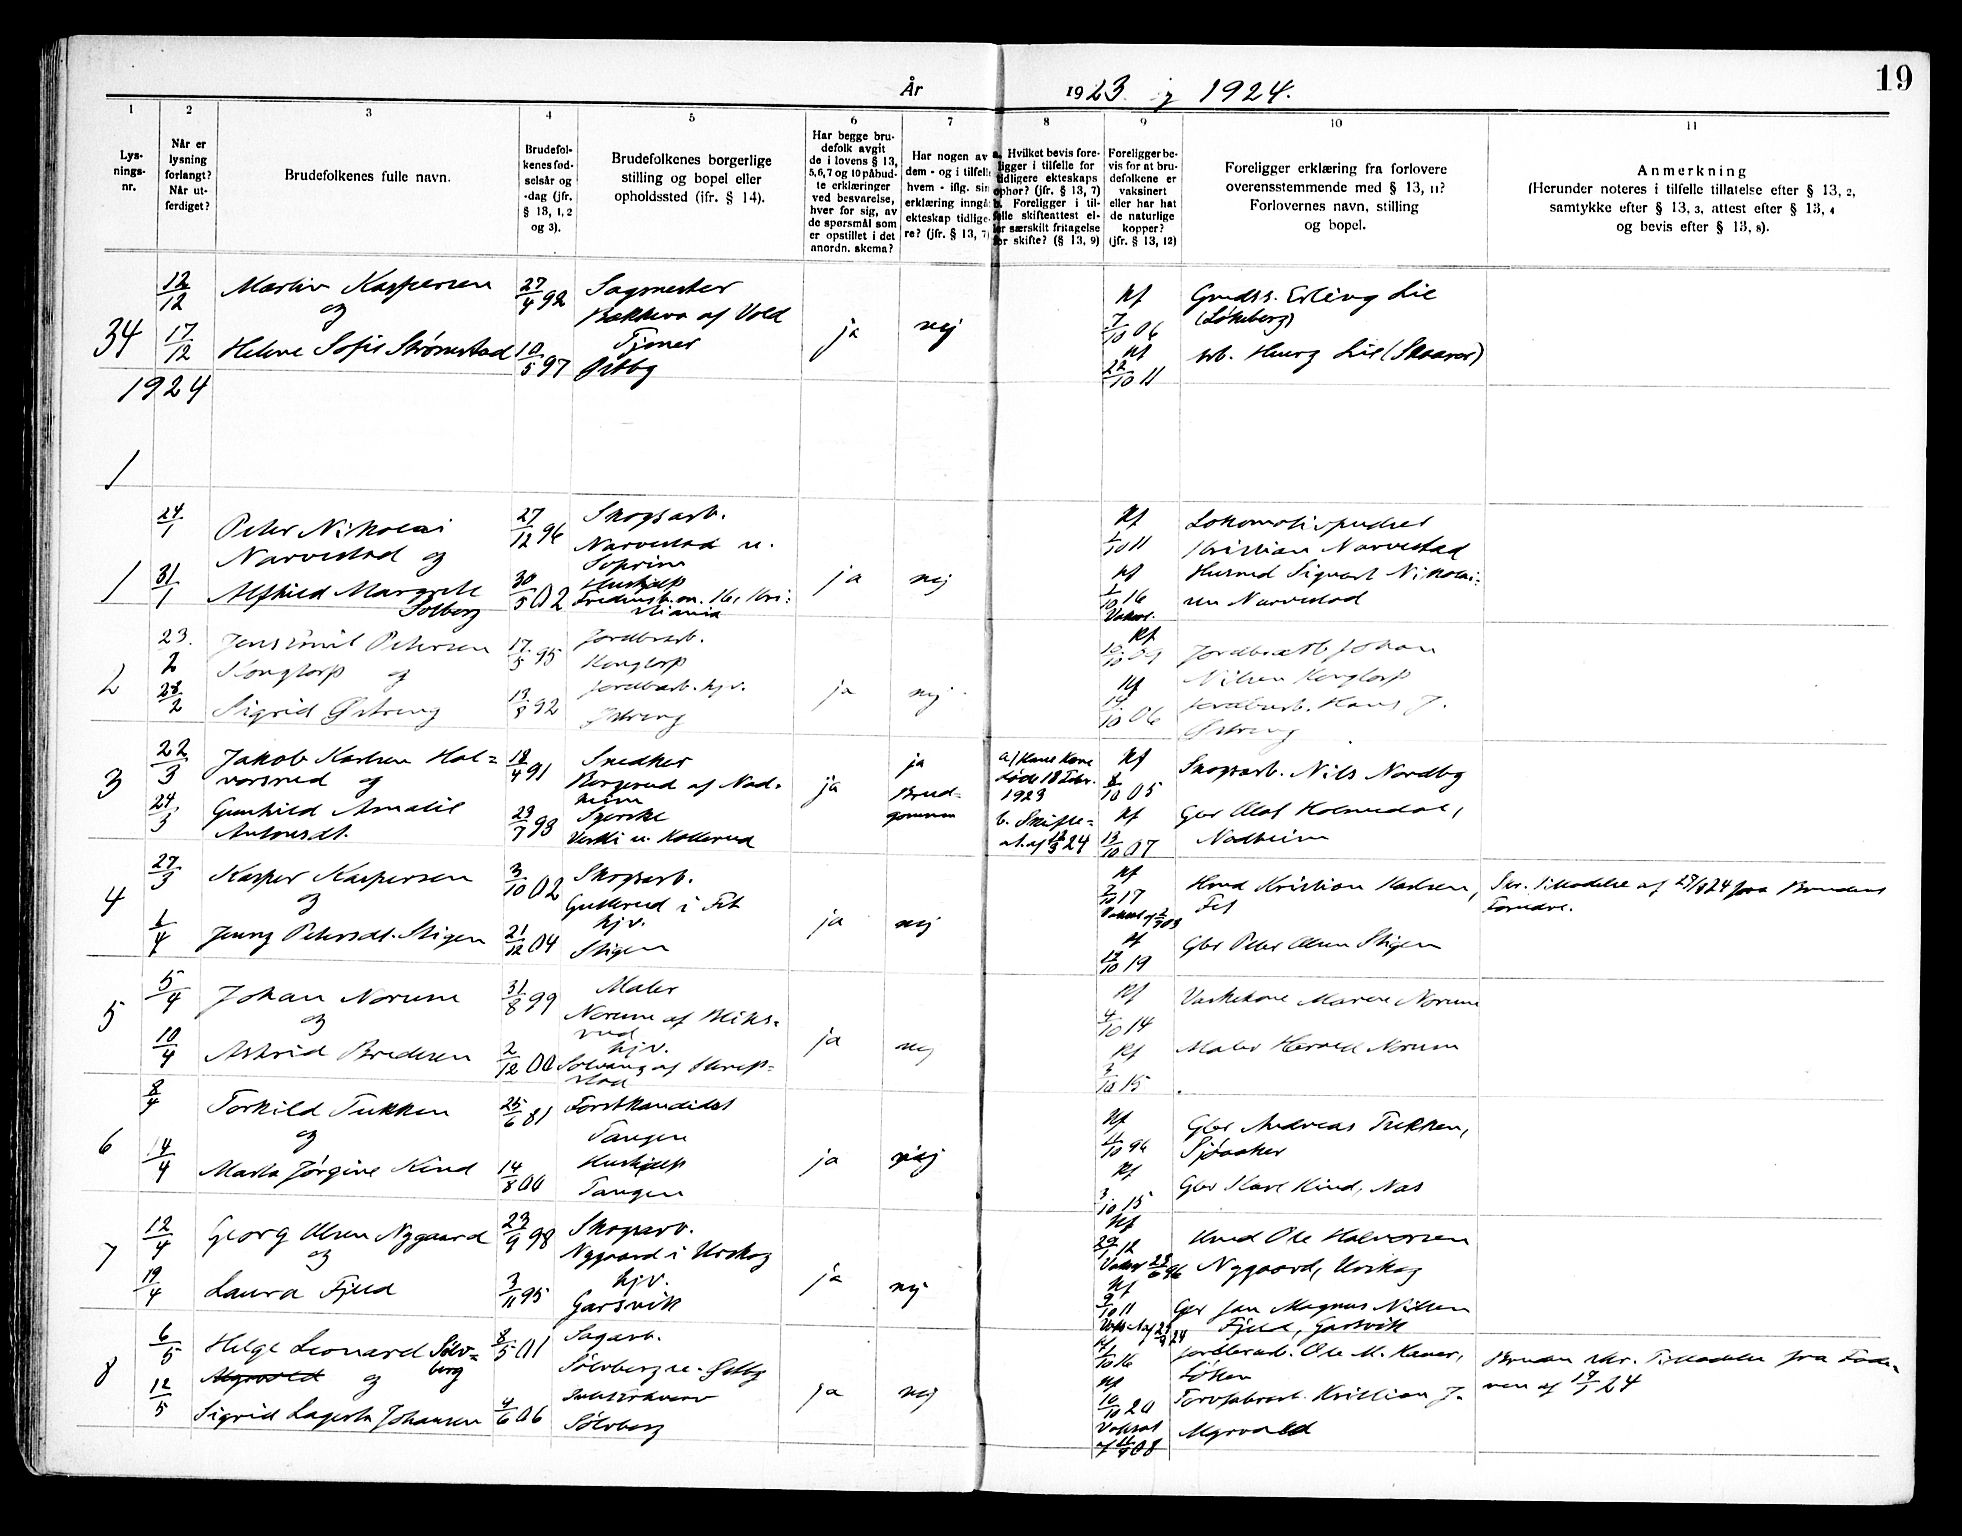 19
År 1923 og 1924.
1 2 3 4 5 6 7 8 9 10 11
Lys-
nings-
nr.
Når er
lysning
forlangt?
Når ut-
ferdiget?
Brudefolkenes fulle navn.
Brudefol-
kenes fød-
selsår og
-dag (jfr.
§ 13, 1, 2
og 3).
Brudefolkenes borgerlige
stilling og bopel eller
opholdssted (jfr. § 14).
Har begge bru-
defolk avgit
de i lovens § 13,
5, 6, 7 og 10 påbud-
te erklæringer
ved besvarelse,
hver for sig, av
de spørsmål som
er opstillet i det
anordn. skema?
Har nogen av
dem - og i tilfelle
hvem - iflg. sin
erklæring inngått
ekteskap tidlige-
re? (jfr. § 13, 7)
a. Hvilket bevis fore-
ligger i tilfelle for
tidligere ekteskaps
ophør? (jfr. § 13, 7)
b. Foreligger i til-
felle skifteattest el-
ler særskilt fritagelse
for skifte? (§ 13, 9)
Foreligger be-
vis for at bru-
defolkene er
vaksinert
eller har hat
de naturlige
kopper?
(jfr. § 13, 12)
Foreligger erklæring fra forlovere
overensstemmende med § 13, 11?
Forlovernes navn, stilling
og bopel.
Anmerkning
(Herunder noteres i tilfelle tillatelse efter § 13, 2,
samtykke efter § 13, 3, attest efter § 13, 4
og bevis efter § 13, 8).
34
12/12
17/12
Martin Kaspersen
og
Helene Sofie Strømstad
27/4 92
10/5 97
Sagmester
Bakkevo af Vold
Tjener
Østby
ja
nej
Kf
7/10 06
Kf
22/10 11
Gmdss. Erling Lie
(Løkeberg)
Lie (Skaarer)
1924
1
1
24/1
31/1
Peter Nikolai
Narvestad og
Alfhild Margrete
Solberg
27/12 96
30/5 02
Skogsarb.
Narvestad u.
Soprim
Hushjelp
Fredensb.v. 16, Kri-
stiania
ja
nej
Kf
1/10 11
Kf
1/10 16
Lokomotivpudser
Kristian Narvestad
Husmd Sigvart Nikolai-
sen Narvestad
2
23.
2
28/2
Jens Emil Petersen
Kongtorp og
Sigrid Østreng
17/5 95
13/8 92
Jordbrarb.
Kongtorp
Jordbrarb. hjv.
Østreng
ja
nej
Vaksi.
Kf
10/10 09
Kf
19/10 06
Jordbrarb Johan
Nilsen Kongtorp
Jordbrarb. Hans J.
Østreng
3
22/3
24/3
Jakob Karlsen Hal-
vorsrud og
Gunhild Amalie
Antonsdt.
18/4 91
23/7 93
Snedker
Borgerud af Nad-
heim
Syerske
Verki u. Kollerud
ja
ja
Brud-
gommen
a) Hans Kone
død 18 Febr.
1923
b. Skifte-
at. af 12/3 24
Kf
8/10 05
Kf
13/10 07
Skogsarb. Nils Nordby
Gbr Olaf Holmedal,
Nadheim
4
27/3
1/4
Kasper Kaspersen
og
Jenny Petersdt. Stigen
3/10 02
21/12 04
Skogsarb.
Gullerud i Fet
hjv.
Stigen
ja
nej
Kf
7/10 17
Kf
12/10 19
Hmd Kristian Karlsen,
Fet
Gbr Peter Olsen Stigen
Skr. Tilladelse af 27/3 24 fra Brudens
Foreldre.
5
5/4
10/4
Johan Norum
og
Astrid Bredesen
31/8 99
2/12 00
Maler
Norum af Bliks-
rud
hjv.
Solvang af Hareps-
stad
ja
nej
Kf
4/10 14
Kf
3/10 15
Vaskekone Maren Norum
Maler Norum
6
8/4
14/4
Torkild Tukken
og
Marta Jørgine Kind
25/6 81
14/8 00
Forstkandidat
Tangen
Hushjelp
Tangen
ja
nej
Kf
4/10 96
Kf
3/10 15
Gbr Andreas Tukken,
Sjøaaker
Gbr Kind, Nas
7
12/4
19/4
Georg Olsen Nygaard
og
Laura Fjeld
23/9 98
3/11 95
Skogsarb.
Nygaard i Urskog
hjv.
Garsvik
ja
nej
Kf
Kf
9/10 11
Hmd Ole Halvorsen
Nygaard, Urskog
Gbr Jan Magnus Nilsen
Fjeld, Garsvik
8
6/5
12/5
Helge Leonard Sølv-
berg
Myrvold og
Sigrid Lagerta Johansen
8/5 01
4/6 06
Sagarb.
Sølvberg u. Østby
Sølvberg
ja
nej
Kf
1/10 16
Kf
10/10 20
Vaksat
Jordbrarb. Ole M. Kaaer,
Løken
Torvfabrarb. Kristian J.
Myrvold
Bruden skr. Tilladelse fra Fade-
ren af 19/1 24